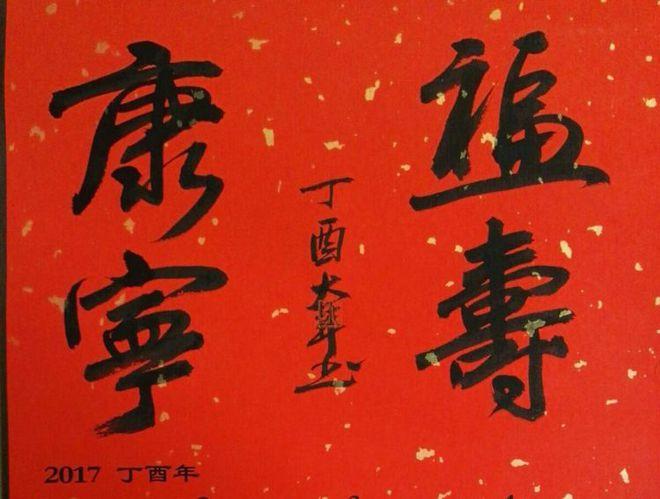 福壽
丁酉大
康寧
2017 丁酉年